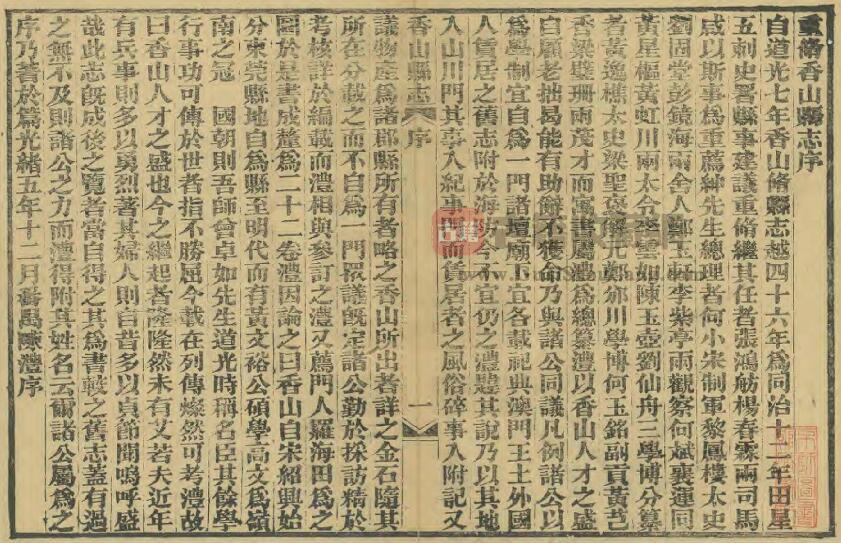 重脩香山縣志序
自道光七年香山脩縣志越四十六年爲同治十二年田星
五刺史署縣事建議重脩繼其任者張鴻舫楊春霖兩司馬
咸以斯事爲重薦紳先生總理者何小宋制軍黎鳳樓太史
劉固堂彭鏡海兩舍人鄭玉軒李紫亭兩觀察何斌襄運同
黃星樞黃虹川兩太令李雲如陳玉壺劉仙舟三學博分纂
者黃逸樵太史梁聖褒解元鄭邠川學博何玉銘副貢黃芑
香梁璧珊兩茂才而寓書屬澧爲總纂澧以香山人才之盛
自顧老拙曷能有助辭不獲命乃與諸公同議凡例諸公以
爲學制宜自爲一門諸壇廟亦宜各載祀典澳門王土外國
人賃居之舊志附於海防今不宜仍之澧韙其說乃以其地
入山川門其事入紀事門而賃居者之風俗碎事入附記又
香山縣志 序 一
議物產爲諸郡縣所有者略之香山所出者詳之金石隨其
所在分載之而不自爲一門衆議旣定諸公勤於採訪精於
考核詳於編載而澧相與參訂之澧又薦門人羅海田爲之
圖於是書成釐爲二十二卷澧因論之曰香山自宋紹興始
分東莞縣地自爲縣至明代而有黃文裕公碩學高文爲嶺
南之冠 國朝則吾師曾卓如先生道光時稱名臣其餘學
行事功可傳於世者指不勝屈今載在列傳燦然可考澧故
曰香山人才之盛也今之繼起者隆隆然未有艾若夫近年
有兵事則多以勇烈著其婦人則自昔多以貞節聞嗚呼盛
哉此志旣成後之覽者當自得之其爲書較之舊志蓋有過
之無不及則諸公之力而澧得附其姓名云爾諸公屬爲之
序乃著於篇光緒五年十二月番禺陳澧序
古籍